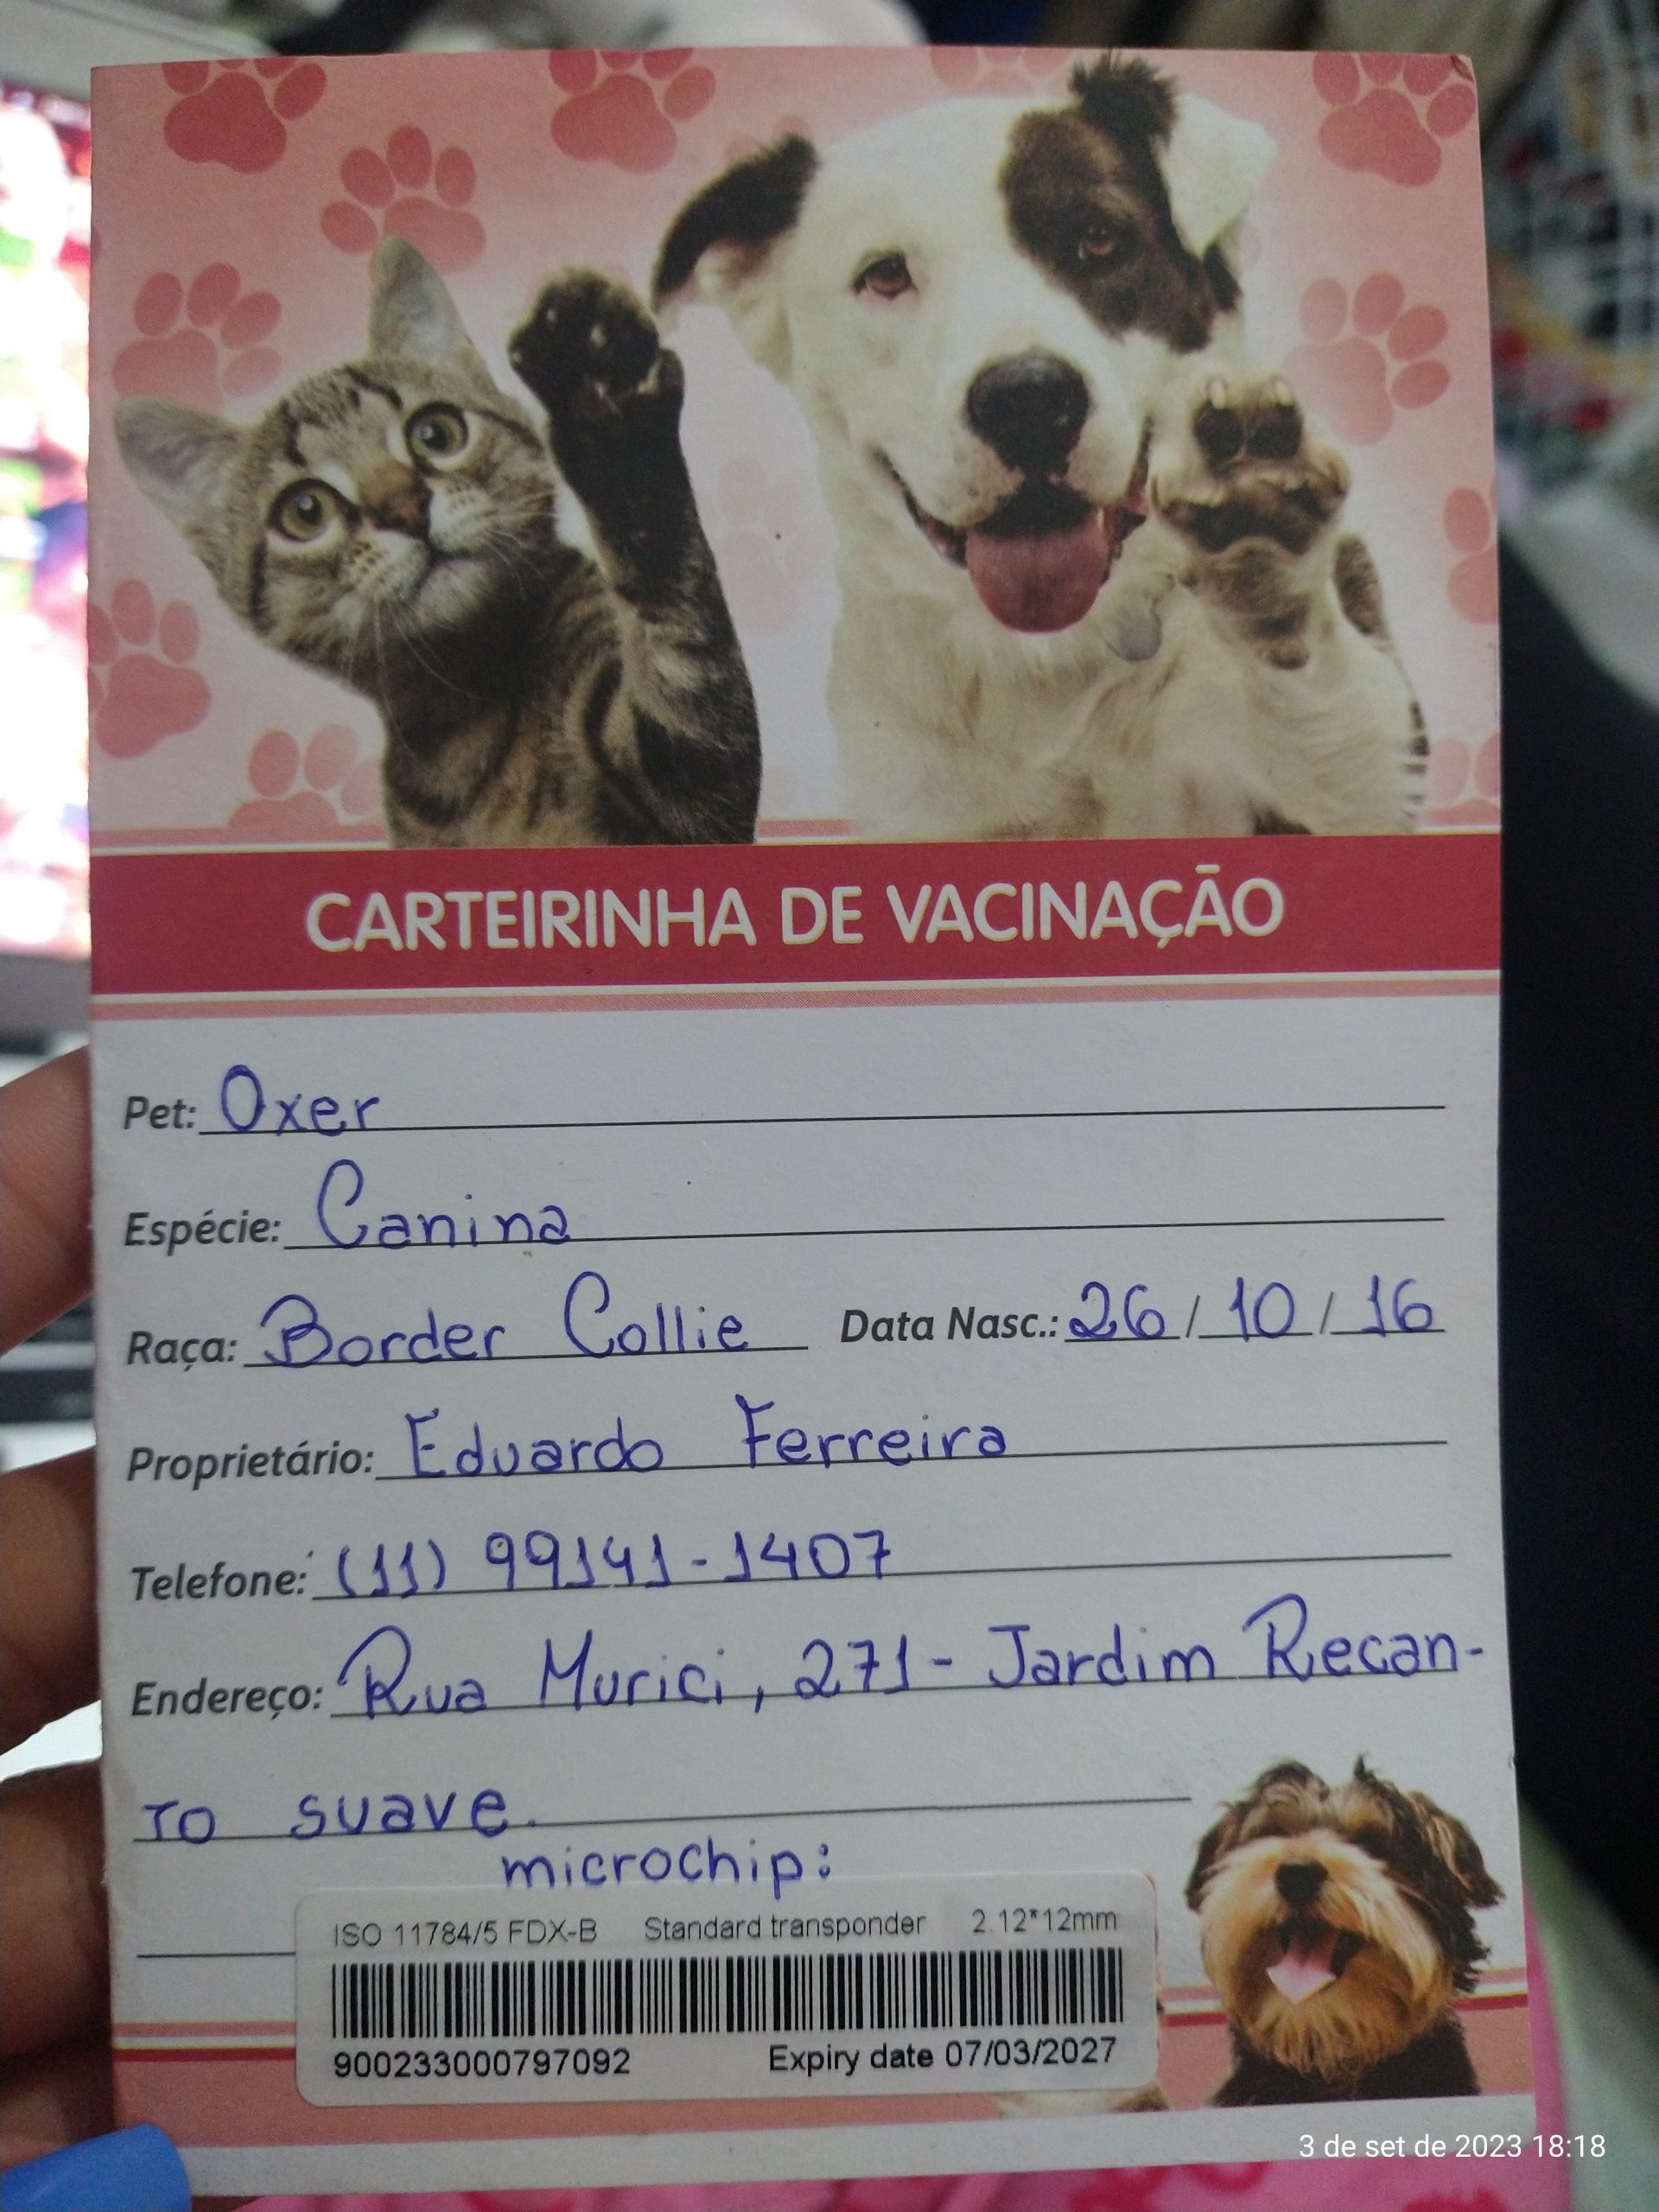 CARTEIRINHA DE VACINAÇÃO
Pet: Oxer
Espécie: Canina
Raça: Border Collie Data Nasc.: 26/10/16
Proprietário: Eduardo Ferreira
Telefone: (11) 99141-1407
Endereço: Rua Murici, 271 - Jardim Recan-
to suave.
microchip:
ISO 11784/5 FDX-B Standard transponder 2.12*12mm
900233000797092 Expiry date 07/03/2027
3 de set de 2023 18:18